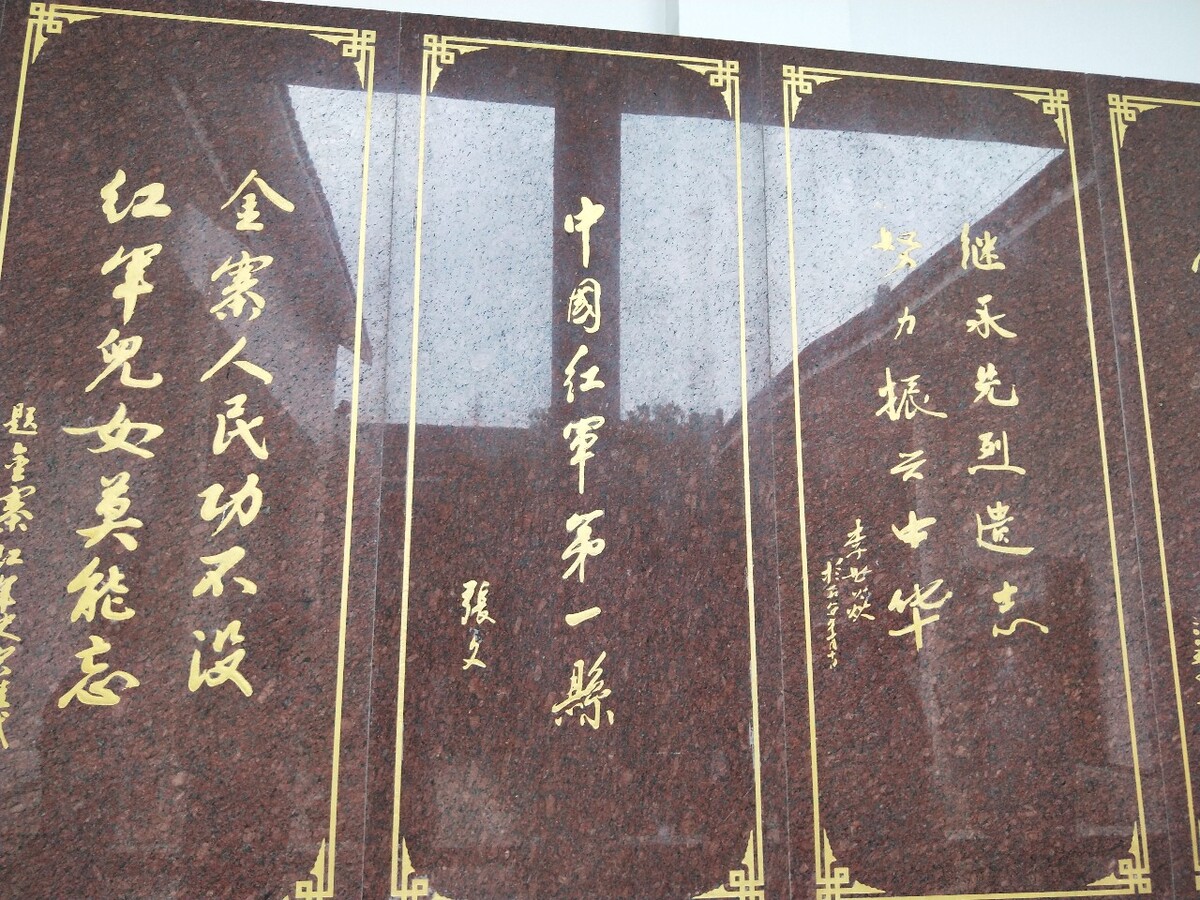 继承先烈遗志
努力振兴中华
李世焱
中國红軍第一縣
張文
金寨人民功不没
红军儿女莫能忘
题金寨红军